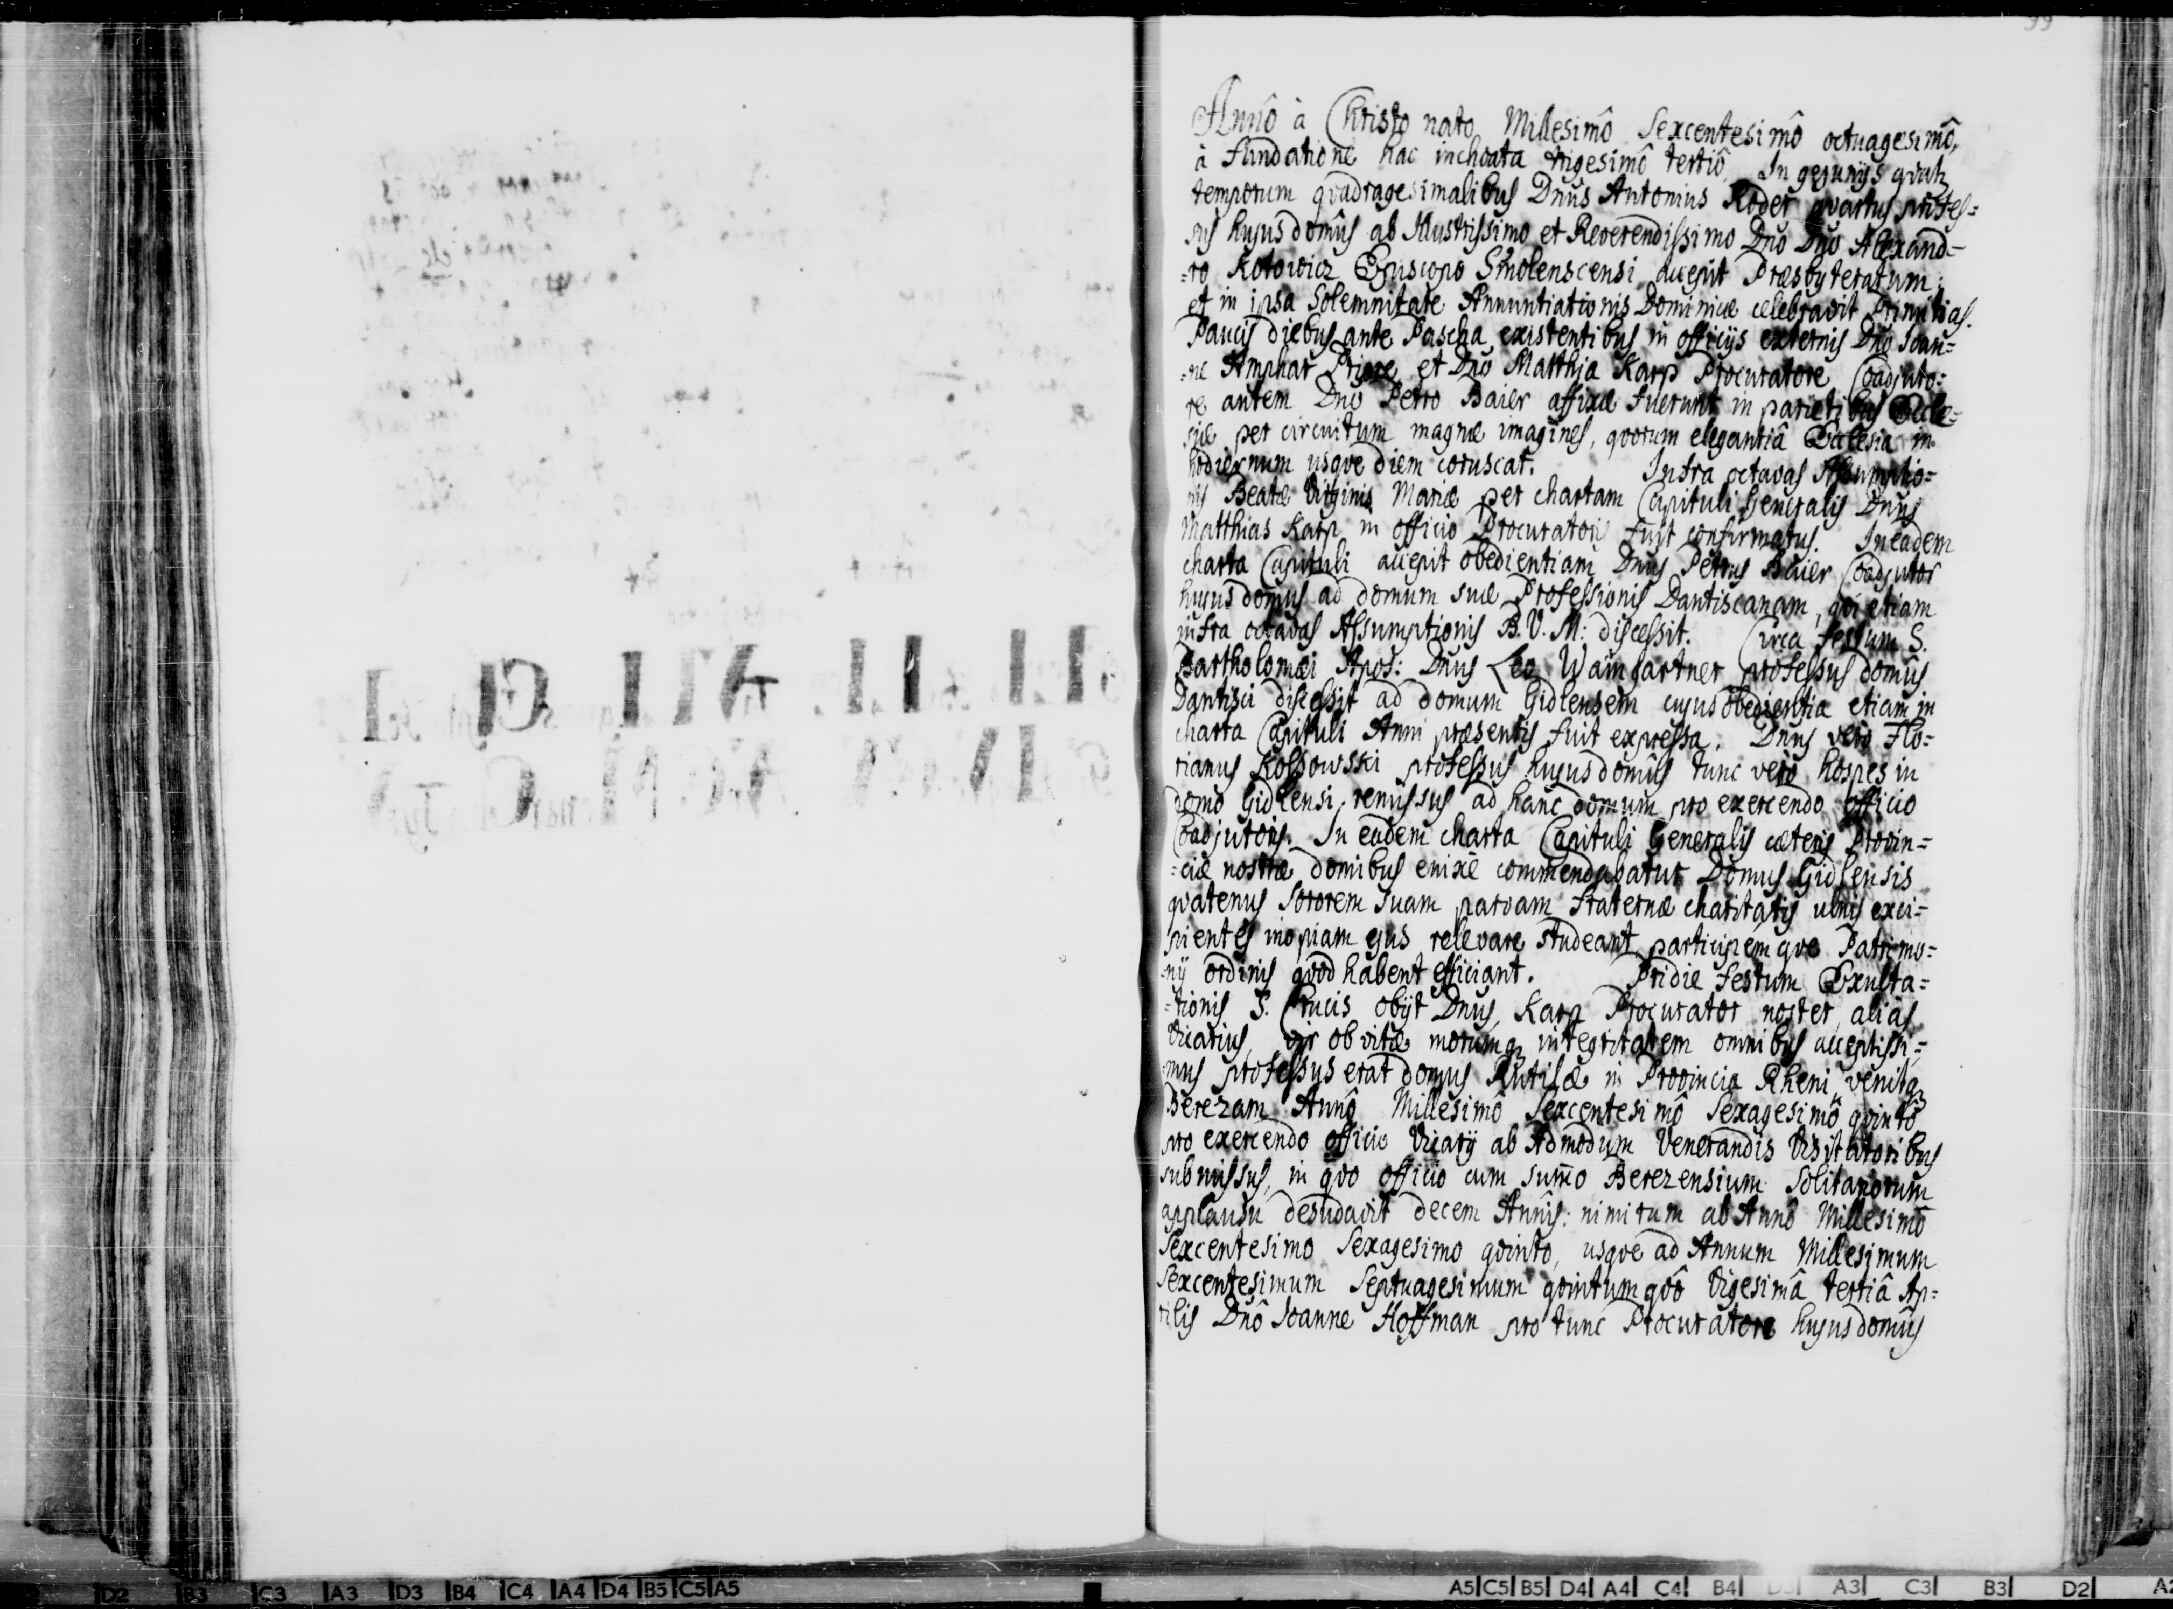 99
Annô à Christo nato Millesimô Sexcentesimô octuagesimô,
à fundatione hac inchoata trigesimô tertiô, In jejunijs
temporum qvadragesimalibus Dnus Antonius Röder qvartus profes=
sus hujus domûs ab Illustrissimo et Reverendissimo Dno Dno Alexand=
=ro Kotowicz Episcopo Smolenscensi accepit Præsbyteratum;
et in ipsa Solemnitate Annuntiationis Dominicæ celebravit Primitias.
Paucis diebus ante Pascha existentibus in officijs externis Dno Ioan=
=ne Amphar Priore et Dno Matthia Karp Procuratore Coadjuto=
re autem Dno Petro Baier affixæ fuerunt in parietibus Eccle=
siæ per circuitum magnæ imagines, qvorum elegantiâ Ecclesia in
hodiernum usqve diem coruscat. Infra octavas Assumptio=
nis Beatæ Virginis Mariæ per chartam Capituli Generalis Dnus
Matthias Karp in officio Procuratoris fuit confirmatus. In eadem
charta Capituli accepit obedientiam Dnus Petrus Baier Coadjutor
hujus domus ad domum suæ Professionis Dantiscanam, qvi etiam
infra octavas Assumptionis B. V. M: discessit. Circa festum S.
Bartholomæi Apos: Dnus Leo Waingartner professus domûs
Dantisci discessit ad domum Gidlensem cujus obedientia etiam in
charta Capituli Anni præsentis fuit expressa. Dnus vero Flo=
rianus Kossowski professus hujus domûs tunc verò hospes in
domo Gidlensi remissus ad hanc domum pro exercendo officio
Coadjutoris. In eadem charta Capituli Generalis cæteris Provin=
=ciæ nostræ domibus enixè commendabatur Domus Gidlensis
qvatenus Sororem suam parvam fraternæ charitatis ulnis exci=
pientes inopiam ejus relevare studeant participem qve Patrimo=
nij ordinis qvod habent efficiant. Pridie festum Exalta=
=tionis S. Crucis obijt Dnus Karp Procurator noster, alias
Vicarius, vir ob vitæ morumq integritatem omnibus acceptissi=
mus professus erat domus Rutilæ in Provincia Rheni venitq
Berezam Annô Millesimô Sexcentesimô Sexagesimô qvintô
pro exercendo officio Vicarij ab Admodum Venerandis Visitatoribus
submissus, in qvo officio cum summo Berezensium Solitariorum
applausu desudavit decem Annis: nimirum ab Annô Millesimô
Sexcentesimo Sexagesimo qvinto, usqve ad Annum Millesimum
Sexcentesimum Septuagesimum qvintum qvô Vigesimâ tertiâ Ap=
rilis Dnô Ioanne Hoffman pro tunc Procuratore hujus domûs